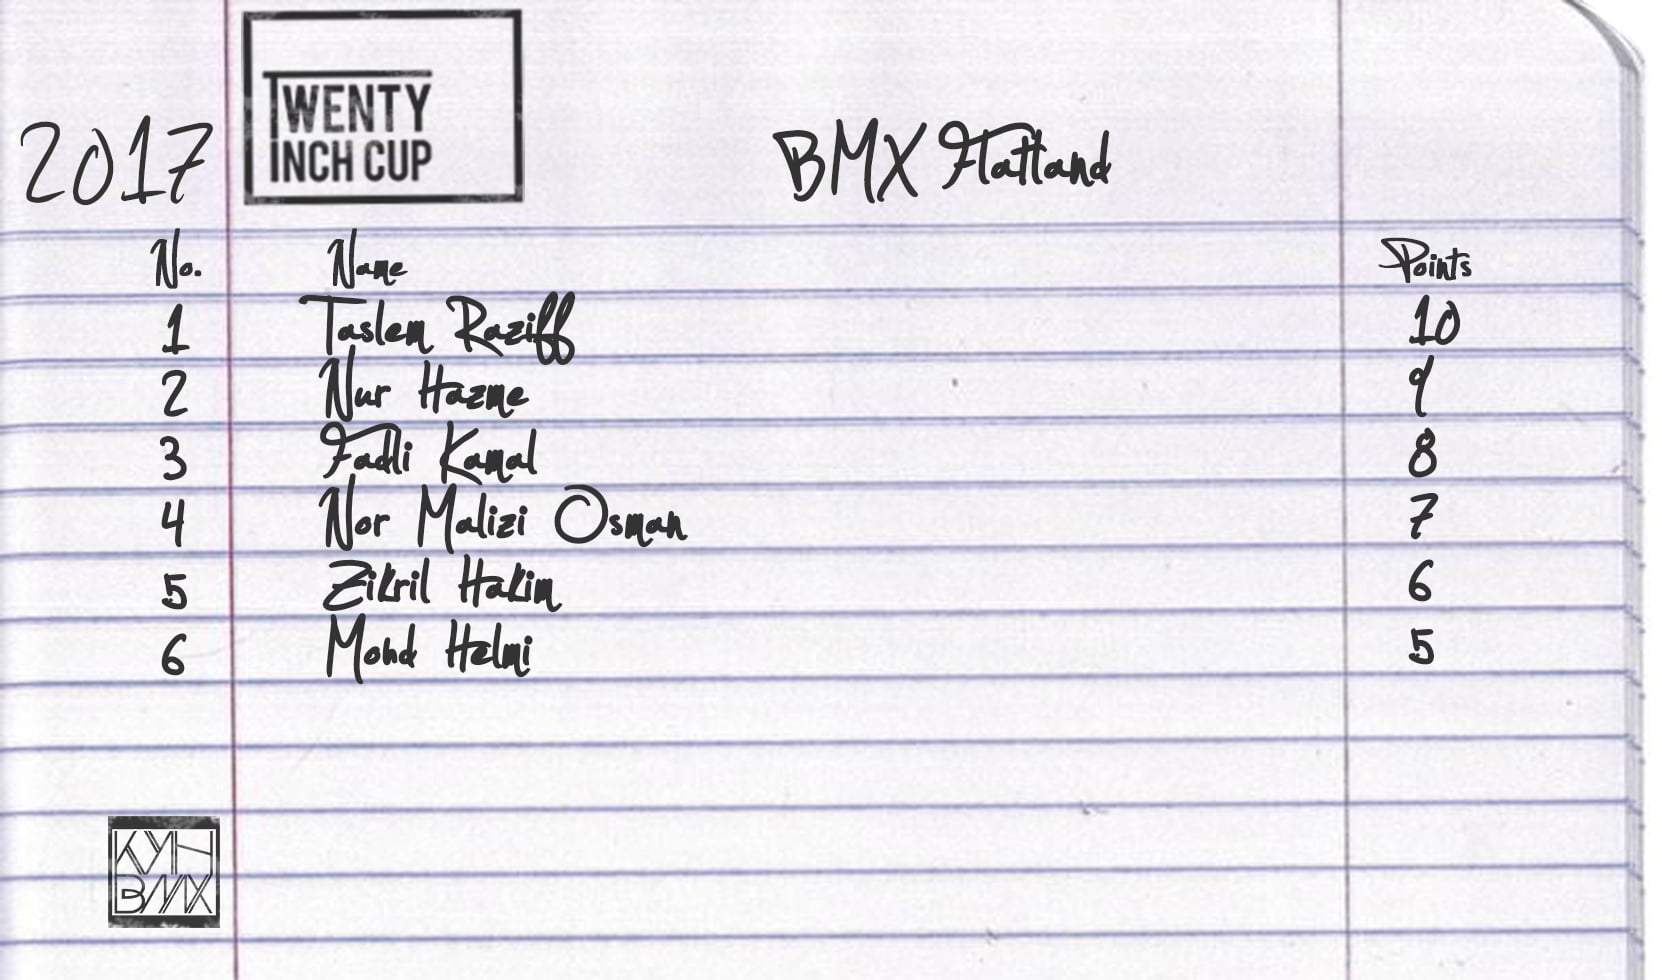 2017 TWENTY INCH CUP BMX Flatland
No. Name Points
1 Taslem Raziff 10
2 Nur Hazme 9
3 Fadli Kamal 8
4 Nor Malizi Osman 7
5 Zikril Hakim 6
6 Mohd Helmi 5
KYH
BMX